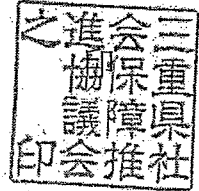 三重県社
会保障推
進協議会
之印